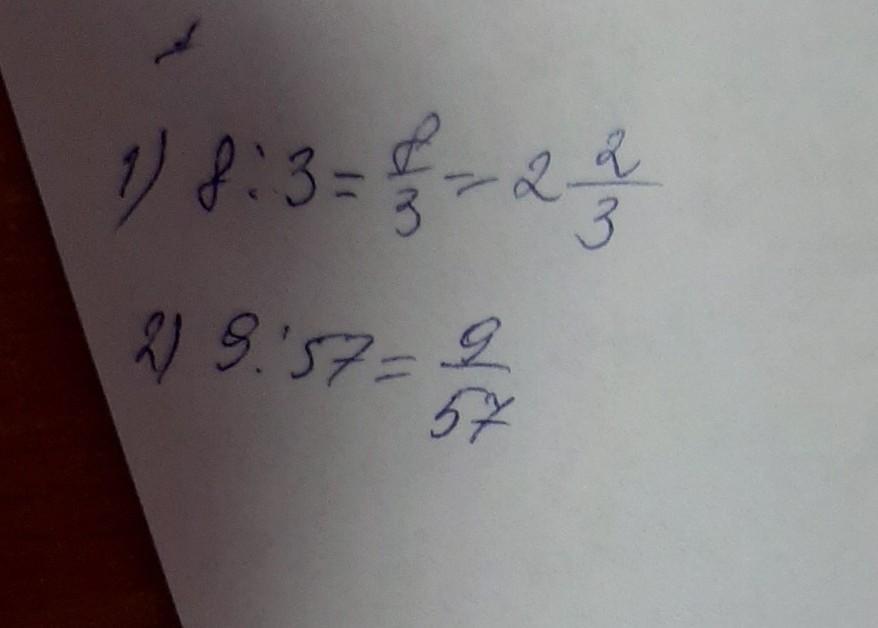 1) 8 : 3 = 8/3 = 2 2/3
2) 9 : 57 = 9/57